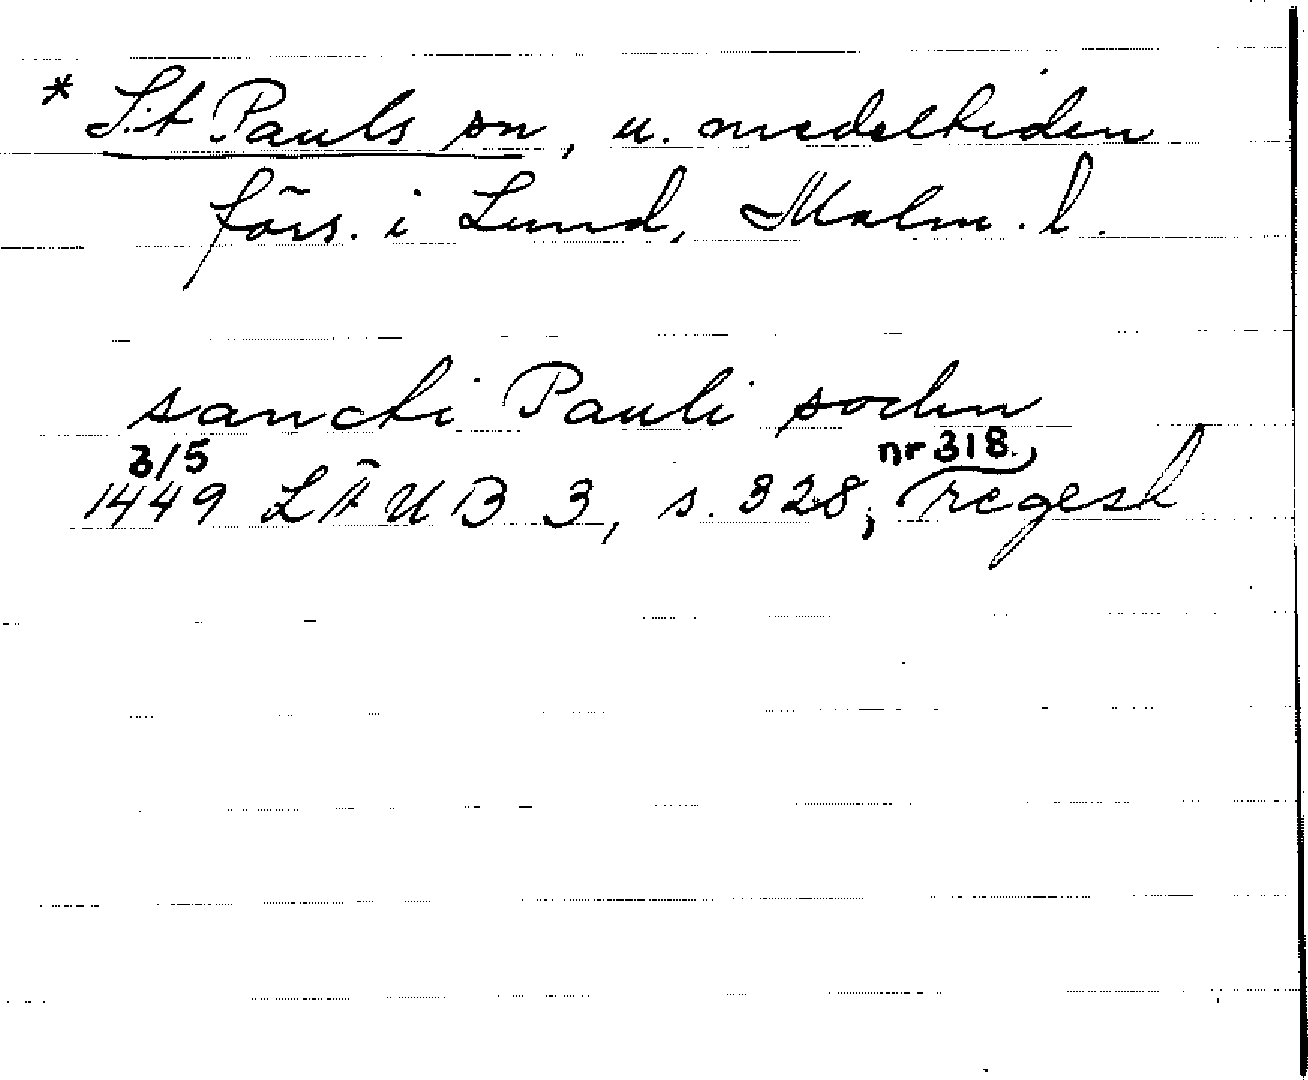 * S:t Pauls sn, u. medeltiden
förs. i Lund, Malm. l.
sancti Pauli sochn
3/5 nr 318,
1449 LÄUB 3, s. 328; regest